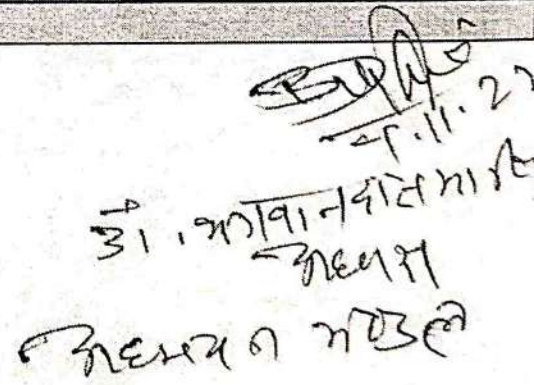 .11.2
डॉ. भगवानदास
अध्यक्ष
अध्ययन मण्डल